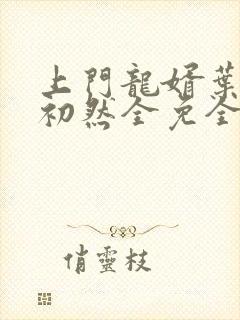 上門龍婿葉
初然全免全
俏靈枝